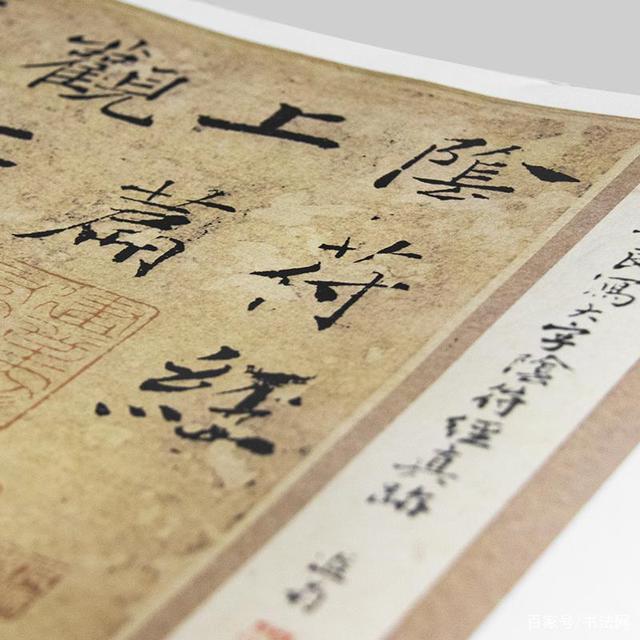 良寫大字陰符經真跡
陰符經
上篇
觀
百家号/书法网